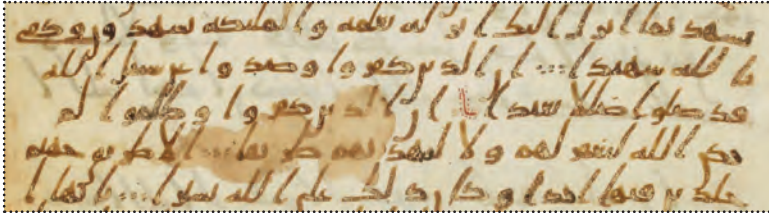 يشهد بما انزل اليك انزله بعلمه والملئكة يشهدون وكفى
بالله شهيدا ان الذين كفروا وصدوا عن سبيل الله
قد ضلوا ضللا بعيدا ان الذين كفروا وظلموا لم
يكن الله ليغفر لهم ولا ليهديهم طريقا الا طريق جهنم
خلدين فيها ابدا وكان ذلك على الله يسيرا يايها ا